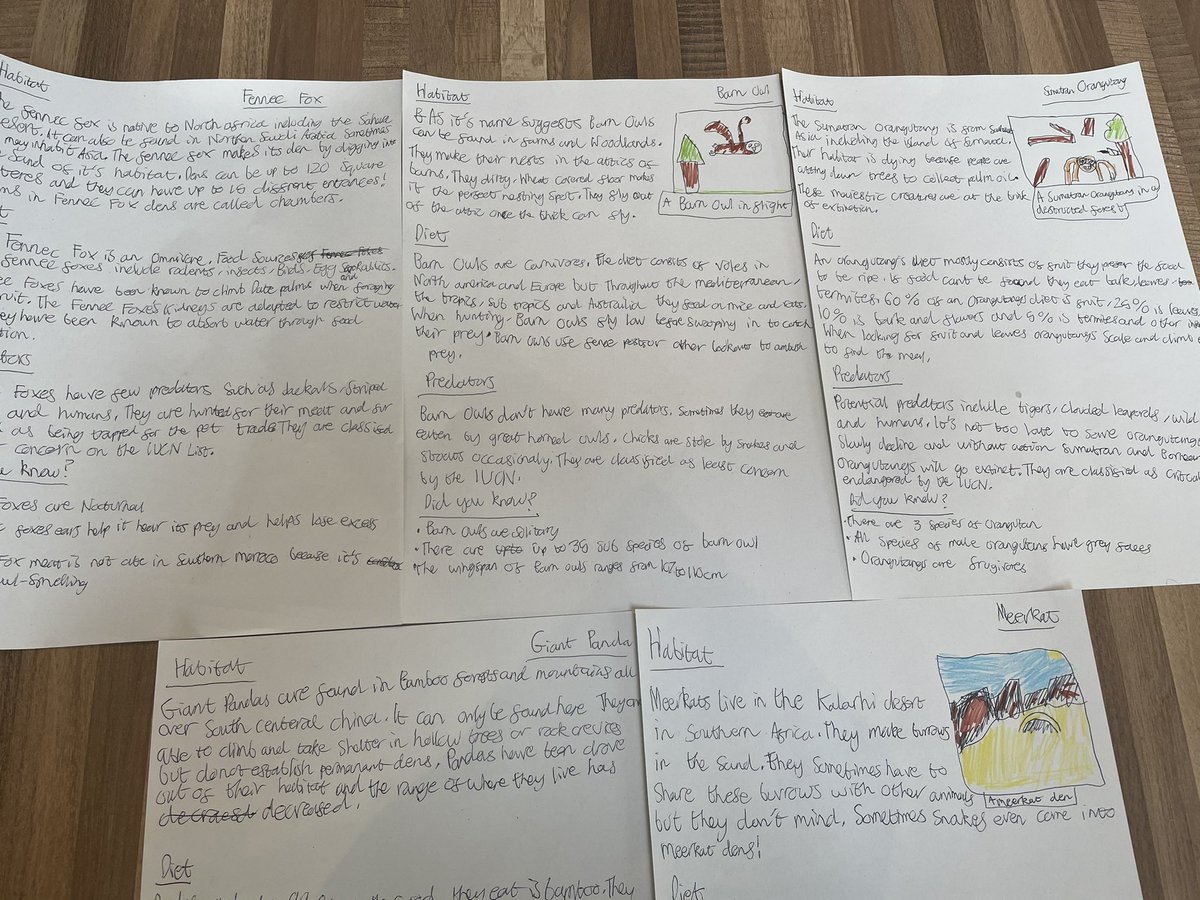 Habitat
Fennec Fox
The fennec fox is native to North africa including the Sahara
esert. It can also be found in Northen Saudi Arabia Sometimes
may inhabit Asia. The fennec fox makes its den by digging into
e Sand of it's habitat. Dens can be up to 120 Square
teres and they can have up to 15 different entrances!
ms in Fennec Fox dens are called chambers.
Fennec Fox is an Omnivore. Food Sources
fennec foxes include rodents, insects, Birds, Egg and Rabbits.
ec Foxes have been known to climb Date palms when foraging
ruit. The Fennec Fox's Kidneys are adapted to restrict water
they have been known to absorb water through food
tion.
tors
Foxes have few predators Such as Jackals, Striped
and humans. They are hunted for their meat and fur
as being trapped for the pet trade They are classised
concern on the IUCN List.
u know?
Foxes are Nocturnal
c foxes ears help it hear its prey and helps lose excess
Fox meat is not ate in Southern moroco because it's
oul-Smelling
Habitat
Barn Owl
As it's name suggests Barn Owls
can be found in farms and Woodlands.
They make their nests in the attics of
barns. They dirty. Wheat covered floor makes
it the perfect nesting spot. They fly out
of the attic once the chick can fly.
A Barn Owl in flight
Diet
Barn Owls are Carnivores. The diet consits of Voles in
North america and Europe but Throughout the mediterranean,
the tropics, sub tropics and Austrailia they feed on mice and rats.
When hunting. Barn Owls fly low before Sweeping in to catch
their prey. Barn Owls use fence posts or other lookouts to ambush
prey.
Predators
Barn Owls don't have many predators. Sometimes they are
eaten by great horned owls. Chicks are stole by snakes and
Stoats occasionaly. They are classified as least concern
by the IUCN.
Did you know?
• Barn Owls are Solitary
• There are upto up to 35 sub species of barn owl
• The wingspan of Barn owls ranges from 107 to 110cm
Habitat
Sumatran Orangutang
The Sumatran Orangutang is from
Asia including the island of Sumatra.
Their habitat is dying because people are
cutting down trees to collect palm oil.
These majestic creatures are at the brink
of extinction.
A Sumatran Orangutang in a
destructed forest
Diet
An orangutang's diet mostly consists of fruit they prefer the food
to be ripe. is food cant be found they eat bark, leaves
termites. 60% of an Orangutang's diet is fruit, 25% is leaves
10% is bark and flowers and 5% is termites and other
When looking for fruit and leaves orangutangs Scale and climb
to find the meal.
Predators
Potential predators include tigers, clouded leapords, wild
and humans. It's not too late to save orangutangs
Slowly decline and without action Sumatran and Bornean
Orangutangs will go extinct. They are classified as critical
endangered by the IUCN.
Did you know?
• There are 3 species of Orangutan
• All species of male orangutans have grey faces
• Orangutangs are frugivores
Habitat
Giant Panda
Giant Pandas are found in Bamboo forests and mountains all
over South centeral china. It can only be found here They are
able to climb and take Shelter in hollow trees or rock crevices
but do not establish permanant dens. Pandas have been drove
out of their habitat and the range of where they live has
decraest decreased.
Diet
they eat is bamboo. They
Meerkat
Habitat
Meerkats live in the Kalarhi desert
in Southern Africa. They make burrows
in the Sand. They Sometimes have to
Share these burrows with other animals
but they don't mind. Sometimes Snakes even come into
meerkat dens!
A meerkat den
Diet